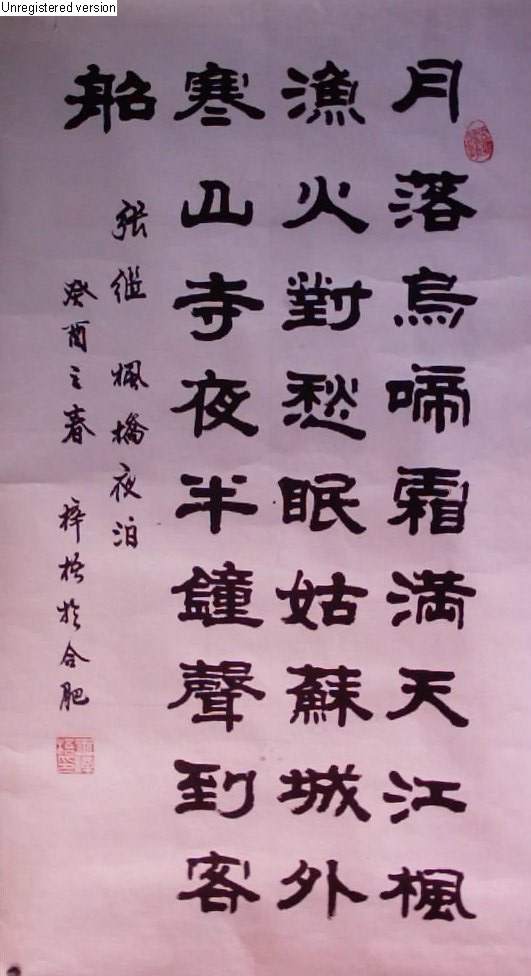 Unregistered version
月落烏啼霜满天江楓
漁火對愁眠姑蘇城外
寒山寺夜半鐘聲到客
船
张继 楓橋夜泊
癸酉之春 梓梧於合肥